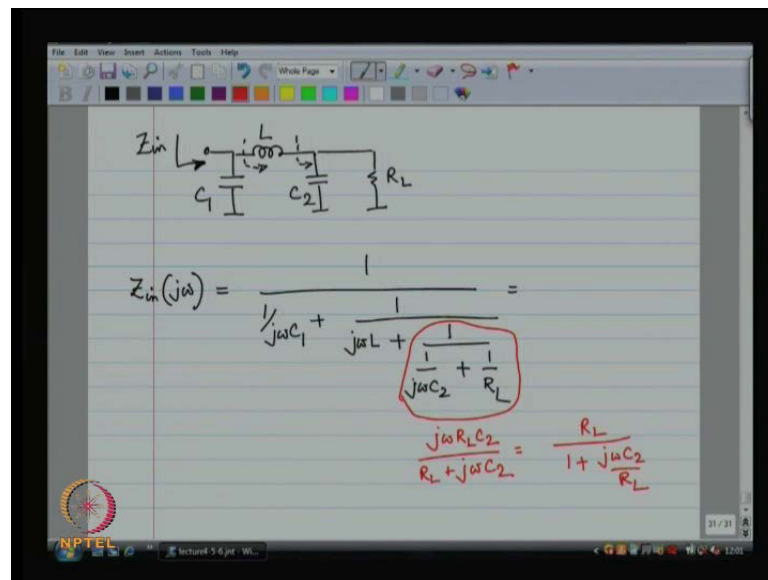 File Edit View Insert Actions Tools Help
Whole Page
B I
Zin L
C1 C2 RL
Zin(jω) = 1 / (1/jωC1 + 1 / (jωL + 1 / (1/jωC2 + 1/RL))) =
jωRLC2 / (RL + jωC2) = RL / (1 + jωC2/RL)
31 / 31
NPTEL
lecture4-5-6.jnt - Wi...
12:01